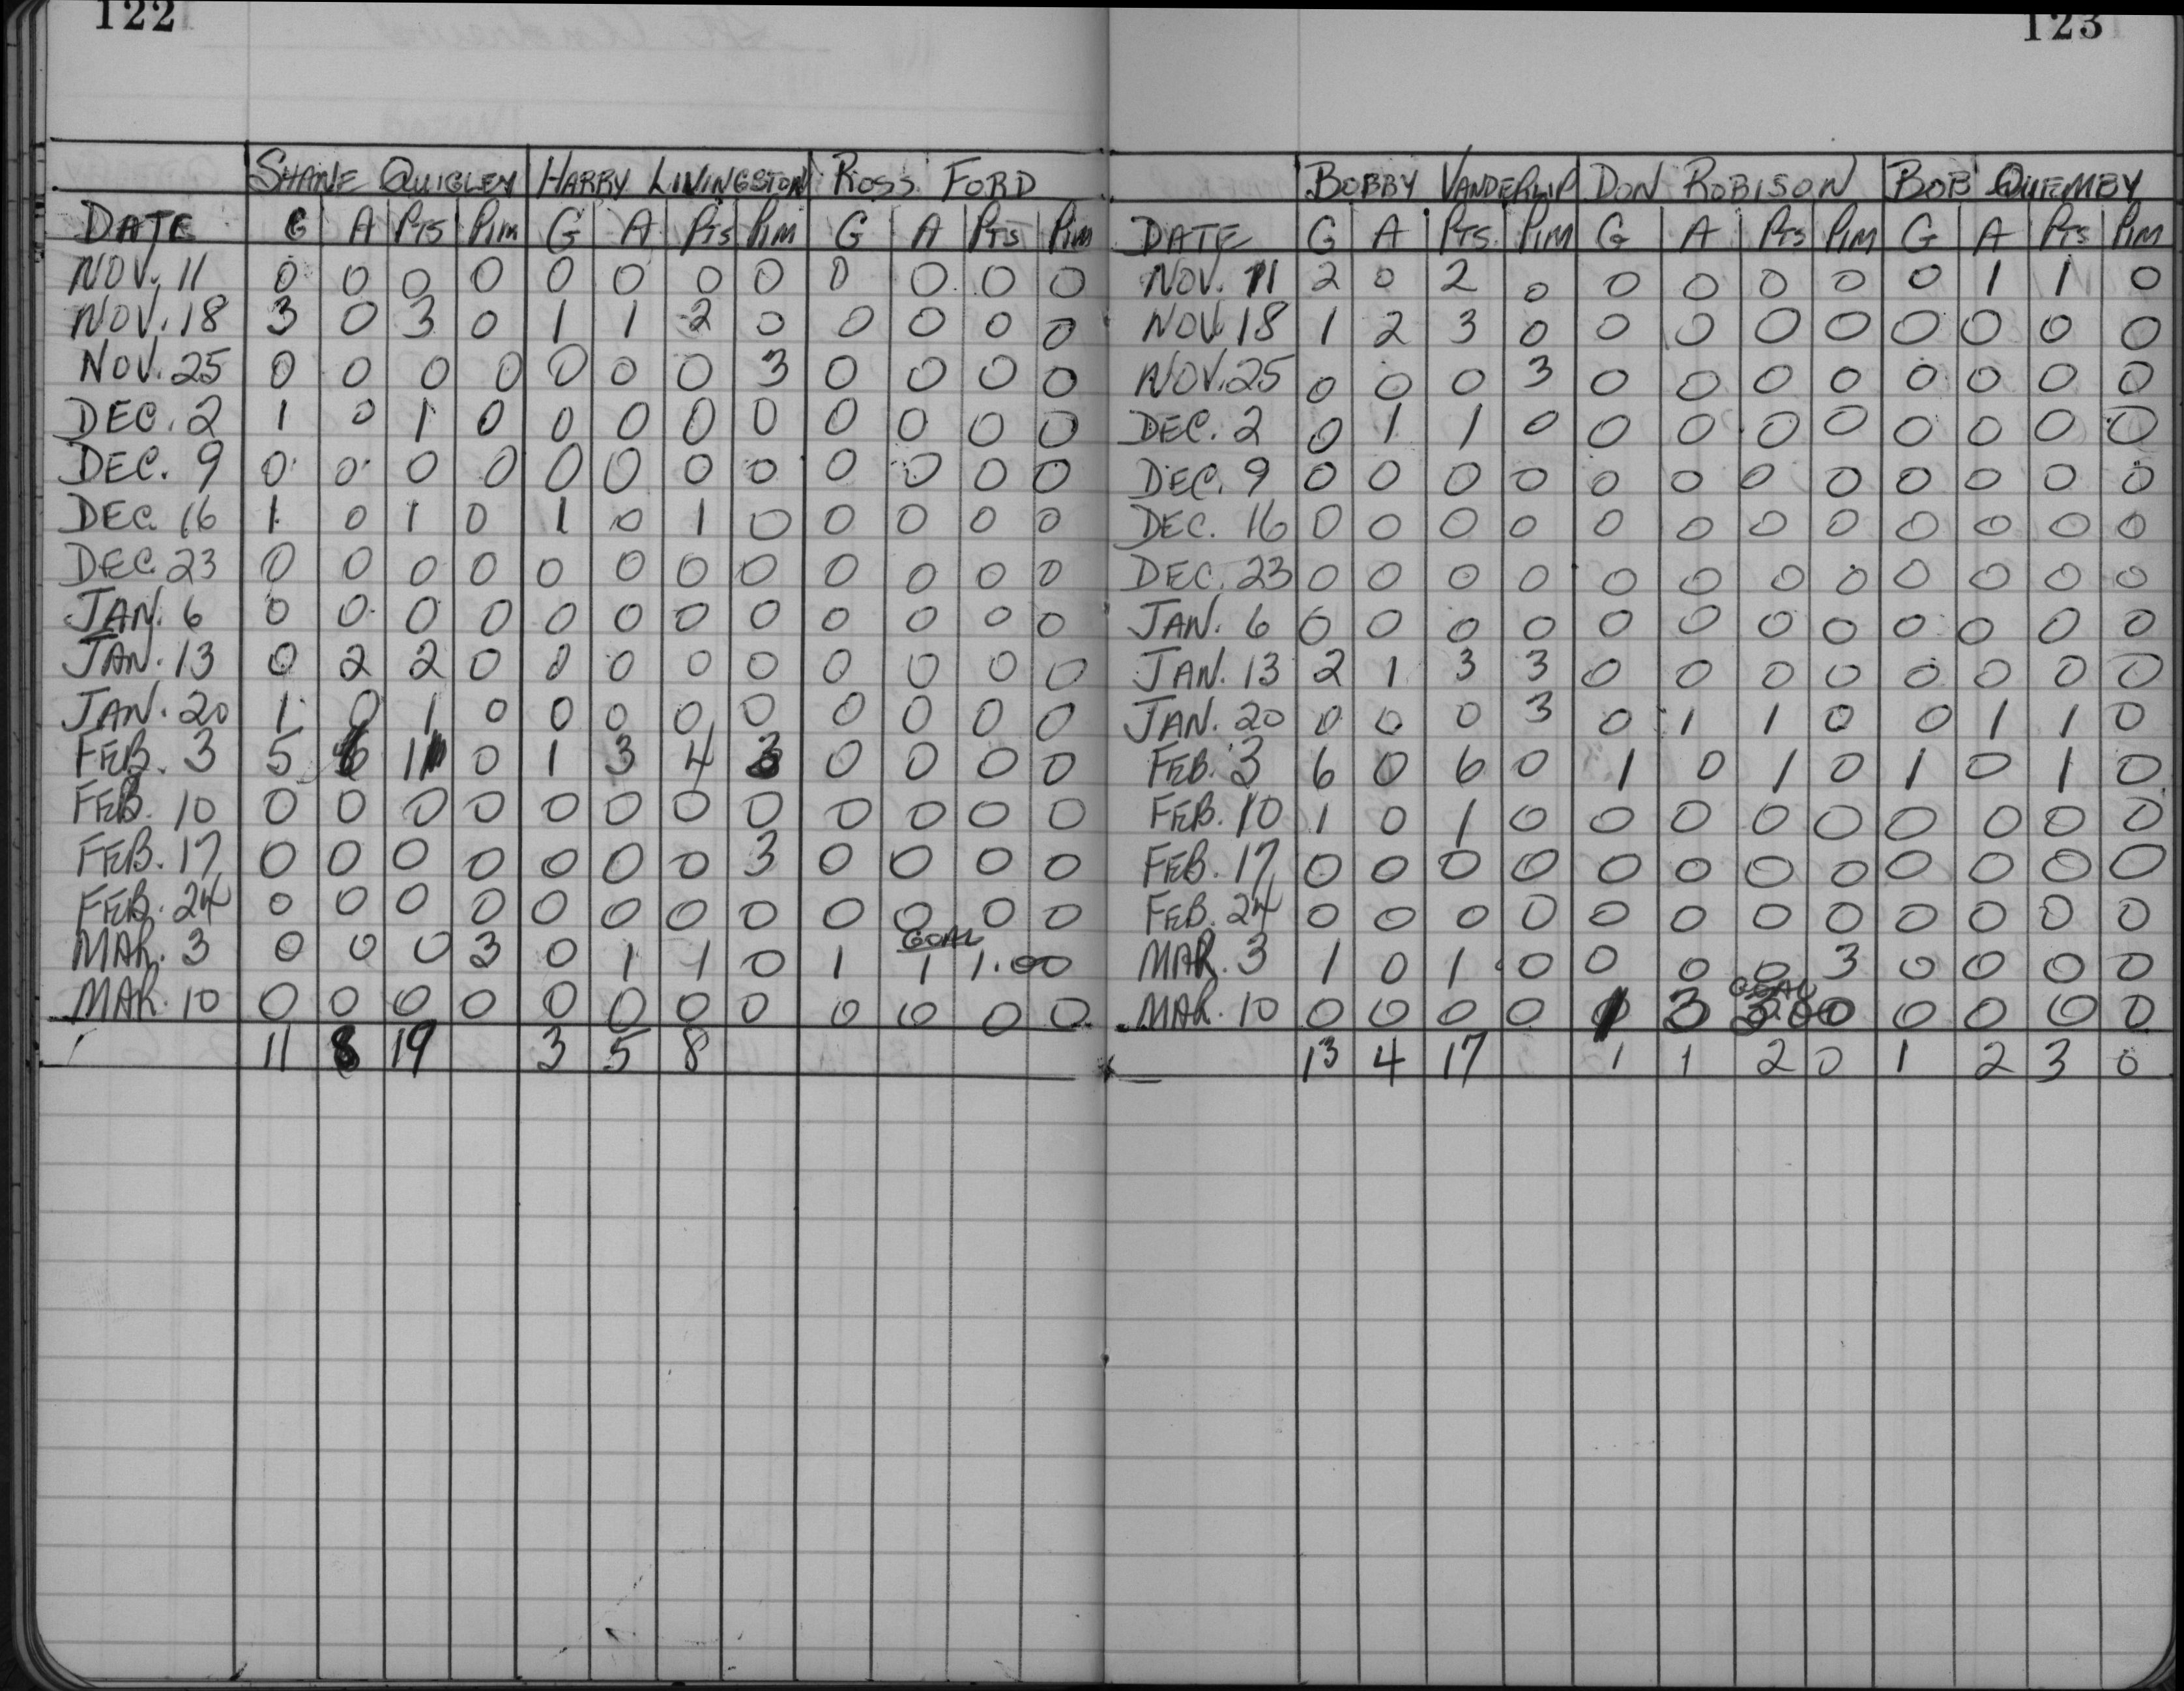 122
SHANE QUIGLEY HARRY LIVINGSTON ROSS FORD
DATE G A PTS PIM G A PTS PIM G A PTS PIM
NOV. 11 0 0 0 0 0 0 0 0 0 0 0 0
NOV. 18 3 0 3 0 1 1 2 0 0 0 0 0
NOV. 25 0 0 0 0 0 0 0 3 0 0 0 0
DEC. 2 1 0 1 0 0 0 0 0 0 0 0 0
DEC. 9 0 0 0 0 0 0 0 0 0 0 0 0
DEC. 16 1 0 1 0 1 0 1 0 0 0 0 0
DEC. 23 0 0 0 0 0 0 0 0 0 0 0 0
JAN. 6 0 0 0 0 0 0 0 0 0 0 0 0
JAN. 13 0 2 2 0 0 0 0 0 0 0 0 0
JAN. 20 1 0 1 0 0 0 0 0 0 0 0 0
FEB. 3 5 6 11 0 1 3 4 3 0 0 0 0
FEB. 10 0 0 0 0 0 0 0 0 0 0 0 0
FEB. 17 0 0 0 0 0 0 0 3 0 0 0 0
FEB. 24 0 0 0 0 0 0 0 0 0 0 0 0
GOAL
MAR. 3 0 0 0 3 0 1 1 0 1 1 1.00
MAR. 10 0 0 0 0 0 0 0 0 0 0 0 0
11 8 19 3 5 8
123
BOBBY VANDERLIP DON ROBISON BOB QUEMBY
DATE G A PTS PIM G A PTS PIM G A PTS PIM
NOV. 11 2 0 2 0 0 0 0 0 0 1 1 0
NOV. 18 1 2 3 0 0 0 0 0 0 0 0 0
NOV. 25 0 0 0 3 0 0 0 0 0 0 0 0
DEC. 2 0 1 1 0 0 0 0 0 0 0 0 0
DEC. 9 0 0 0 0 0 0 0 0 0 0 0 0
DEC. 16 0 0 0 0 0 0 0 0 0 0 0 0
DEC. 23 0 0 0 0 0 0 0 0 0 0 0 0
JAN. 6 0 0 0 0 0 0 0 0 0 0 0 0
JAN. 13 2 1 3 3 0 0 0 0 0 0 0 0
JAN. 20 0 0 0 3 0 1 1 0 0 1 1 0
FEB. 3 6 0 6 0 1 0 1 0 1 0 1 0
FEB. 10 1 0 1 0 0 0 0 0 0 0 0 0
FEB. 17 0 0 0 0 0 0 0 0 0 0 0 0
FEB. 24 0 0 0 0 0 0 0 0 0 0 0 0
MAR. 3 1 0 1 0 0 0 0 3 0 0 0 0
GOAL
MAR. 10 0 0 0 0 1 3 3.00 0 0 0 0
13 4 17 1 1 2 0 1 2 3 0